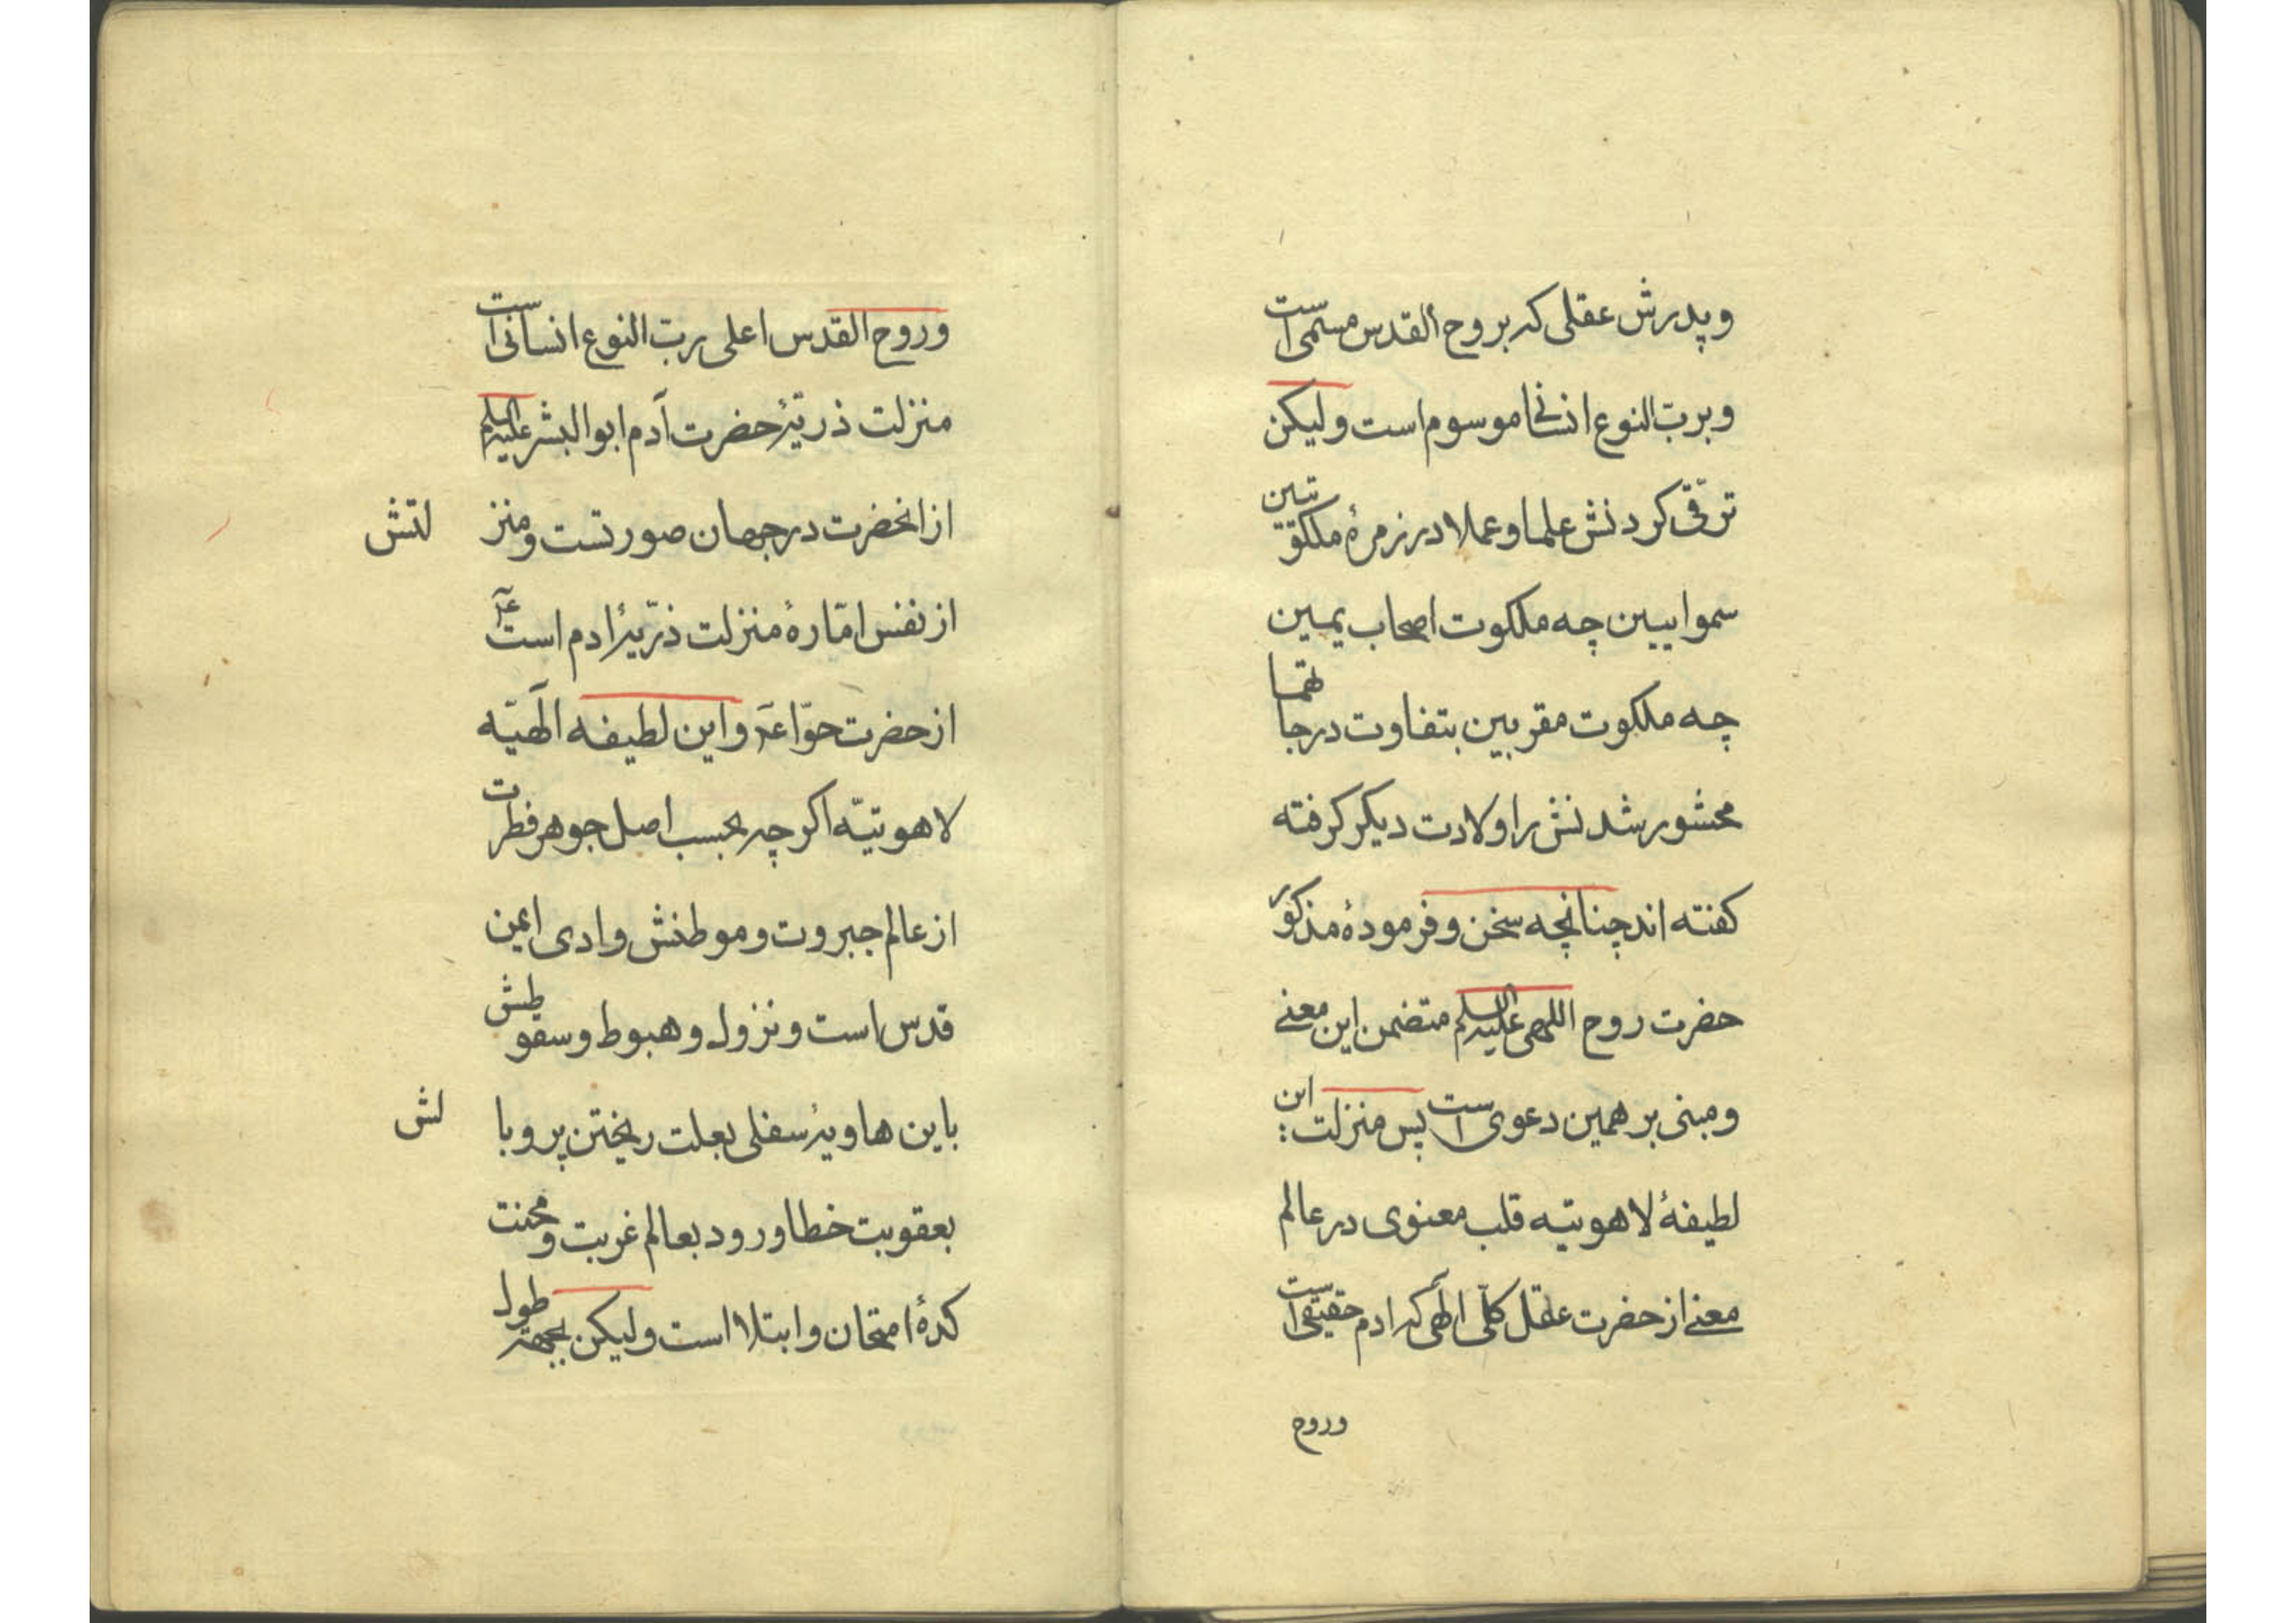 وپدرش عقلی که بروح القدس مسمی است
وبربّ النوع انسانی موسوم است ولیکن
ترقّی کردنش علما وعملا در زمرهٔ ملکوتیین
سمواییین چه ملکوت اصحاب یمین
چه ملکوت مقربین بتفاوت درجاتهما
محشور شدنش را ولادت دیکر کرفته
کفته اند چنانچه سخن وفرمودهٔ مذکور
حضرت روح اللهی علیه السلم متضمن این معنی
ومبنی بر همین دعوی است پس منزلت این
لطیفهٔ لاهوتیّه قلب معنوی در عالم
معنی از حضرت عقل کلّی الٓهی که ادم حقیقی است
وروح
وروح القدس اعلی ربّ النوع انسانی است
منزلت ذریّهٔ حضرت آدم ابوالبشر علیه السلم
از انحضرت در جهان صورتست ومنزلتش
از نفس امّارهٔ منزلت ذرّیهٔ ادم است عٓ
از حضرت حوّا عٓ واین لطیفه الٓهیّه
لاهوتیّه اکرچه بحسب اصل جوهر فطرت
از عالم جبروت وموطنش وادی ایمن
قدس است ونزول وهبوط وسقوطش
باین هاویهٔ سفلی بعلت ریختن پر وبالش
بعقوبت خطا ورود بعالم غربت ومحنت
کدهٔ امتحان وابتلا است ولیکن بجهة طول